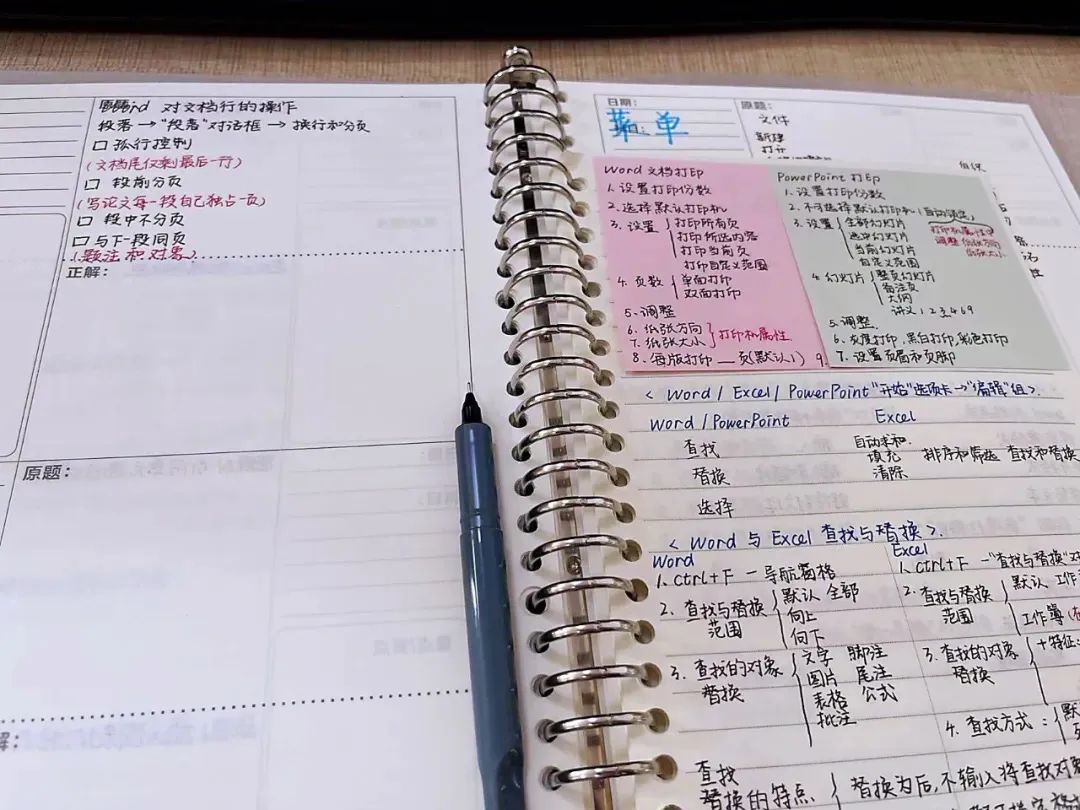 对文档行的操作
段落→"段落"对话框→换行和分页
□孤行控制
(文档尾仅剩最后一行)
□ 段前分页
(写论文每一段自己独占一页)
□ 段中不分页
□ 与下一段同页
(题注和对象)
正解：
原题：
解：
日期：
菜单
原题：
文件
新建
打开
Word 文档打印
1. 设置打印份数
2. 选择默认打印机
3. 设置 打印所有页
打印所选内容
打印当前页
打印自定义范围
4. 页数 单面打印
双面打印
5. 调整
6. 纸张方向
7. 纸张大小 打印机属性
8. 每版打印__页(默认1)
PowerPoint 打印
1. 设置打印份数
2. 不可选择默认打印机(自动锁定)
3. 设置 全部幻灯片
选中幻灯片
当前幻灯片
自定义范围
打印机属性中
调整纸张方向
纸张大小
4. 幻灯片 整页幻灯片
备注页
大纲
讲义 1 2 3 4 6 9
5. 调整
6. 灰度打印,黑白打印,彩色打印
7. 设置页眉和页脚
9.
< Word / Excel / PowerPoint "开始"选项卡→"编辑"组>.
Word / PowerPoint
查找
替换
选择
Excel
自动求和.
填充
清除
排序和筛选 查找和替换
< Word 与 Excel 查找与替换 >.
Word
1. Ctrl+F — 导航窗格
2. 查找与替换范围 默认 全部
向上
向下
3. 查找的对象 替换
文字 脚注
图片 尾注
表格 公式
批注
Excel
1. Ctrl+F —"查找与替换"对
2. 查找与替换范围 默认 工作
工作簿
3. 查找的对象 替换 +特征
4. 查找方式：
查找
替换的特点 替换为后,不输入将查找对